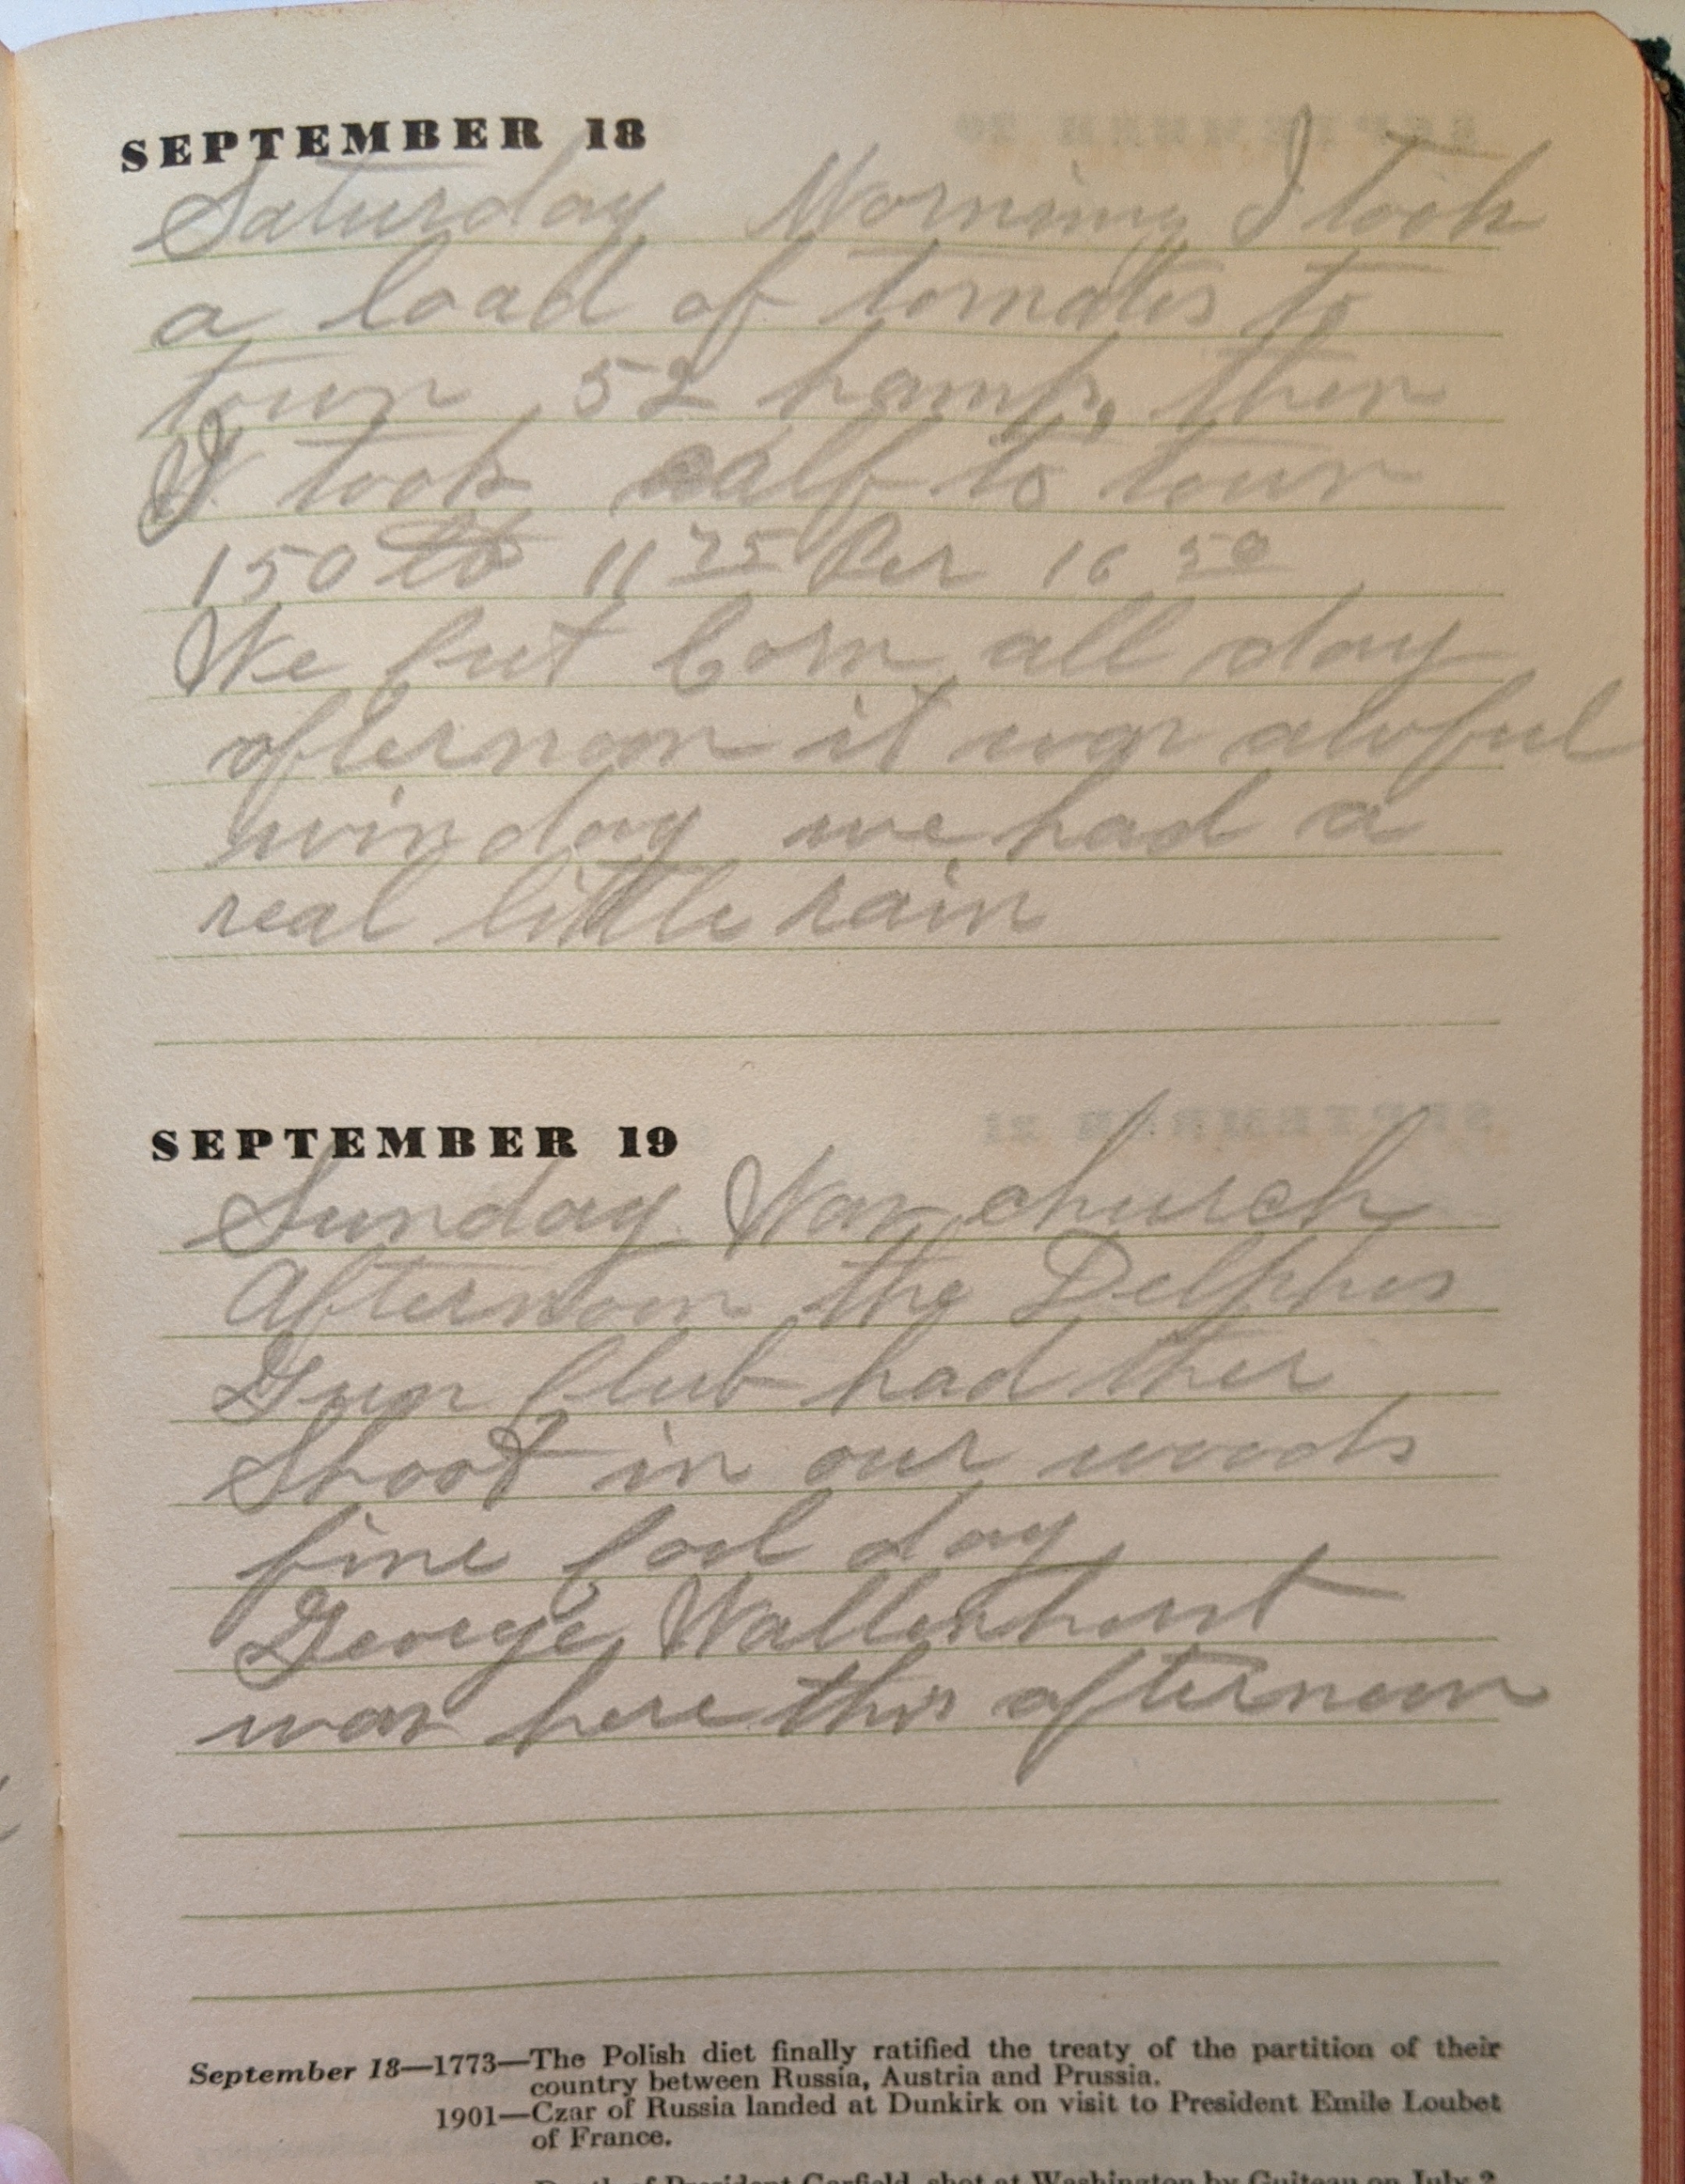 SEPTEMBER 18
Saturday Morning I took
a load of tomatos to
town 52 hamp, then
I took calf to town
150 lb 11 25 Per 16 50
We cut Corn all day
afternoon it was awful
winday we had a
real little rain
SEPTEMBER 19
Sunday Was church
Afternoon the Delphos
Gun Club had ther
Shoot in our woods
fine cool day
George Wallenhorst
was here this afternoon
September 18—1773—The Polish diet finally ratified the treaty of the partition of their
country between Russia, Austria and Prussia.
1901—Czar of Russia landed at Dunkirk on visit to President Emile Loubet
of France.
Death of President Garfield, shot at Washington by Guiteau on July 2